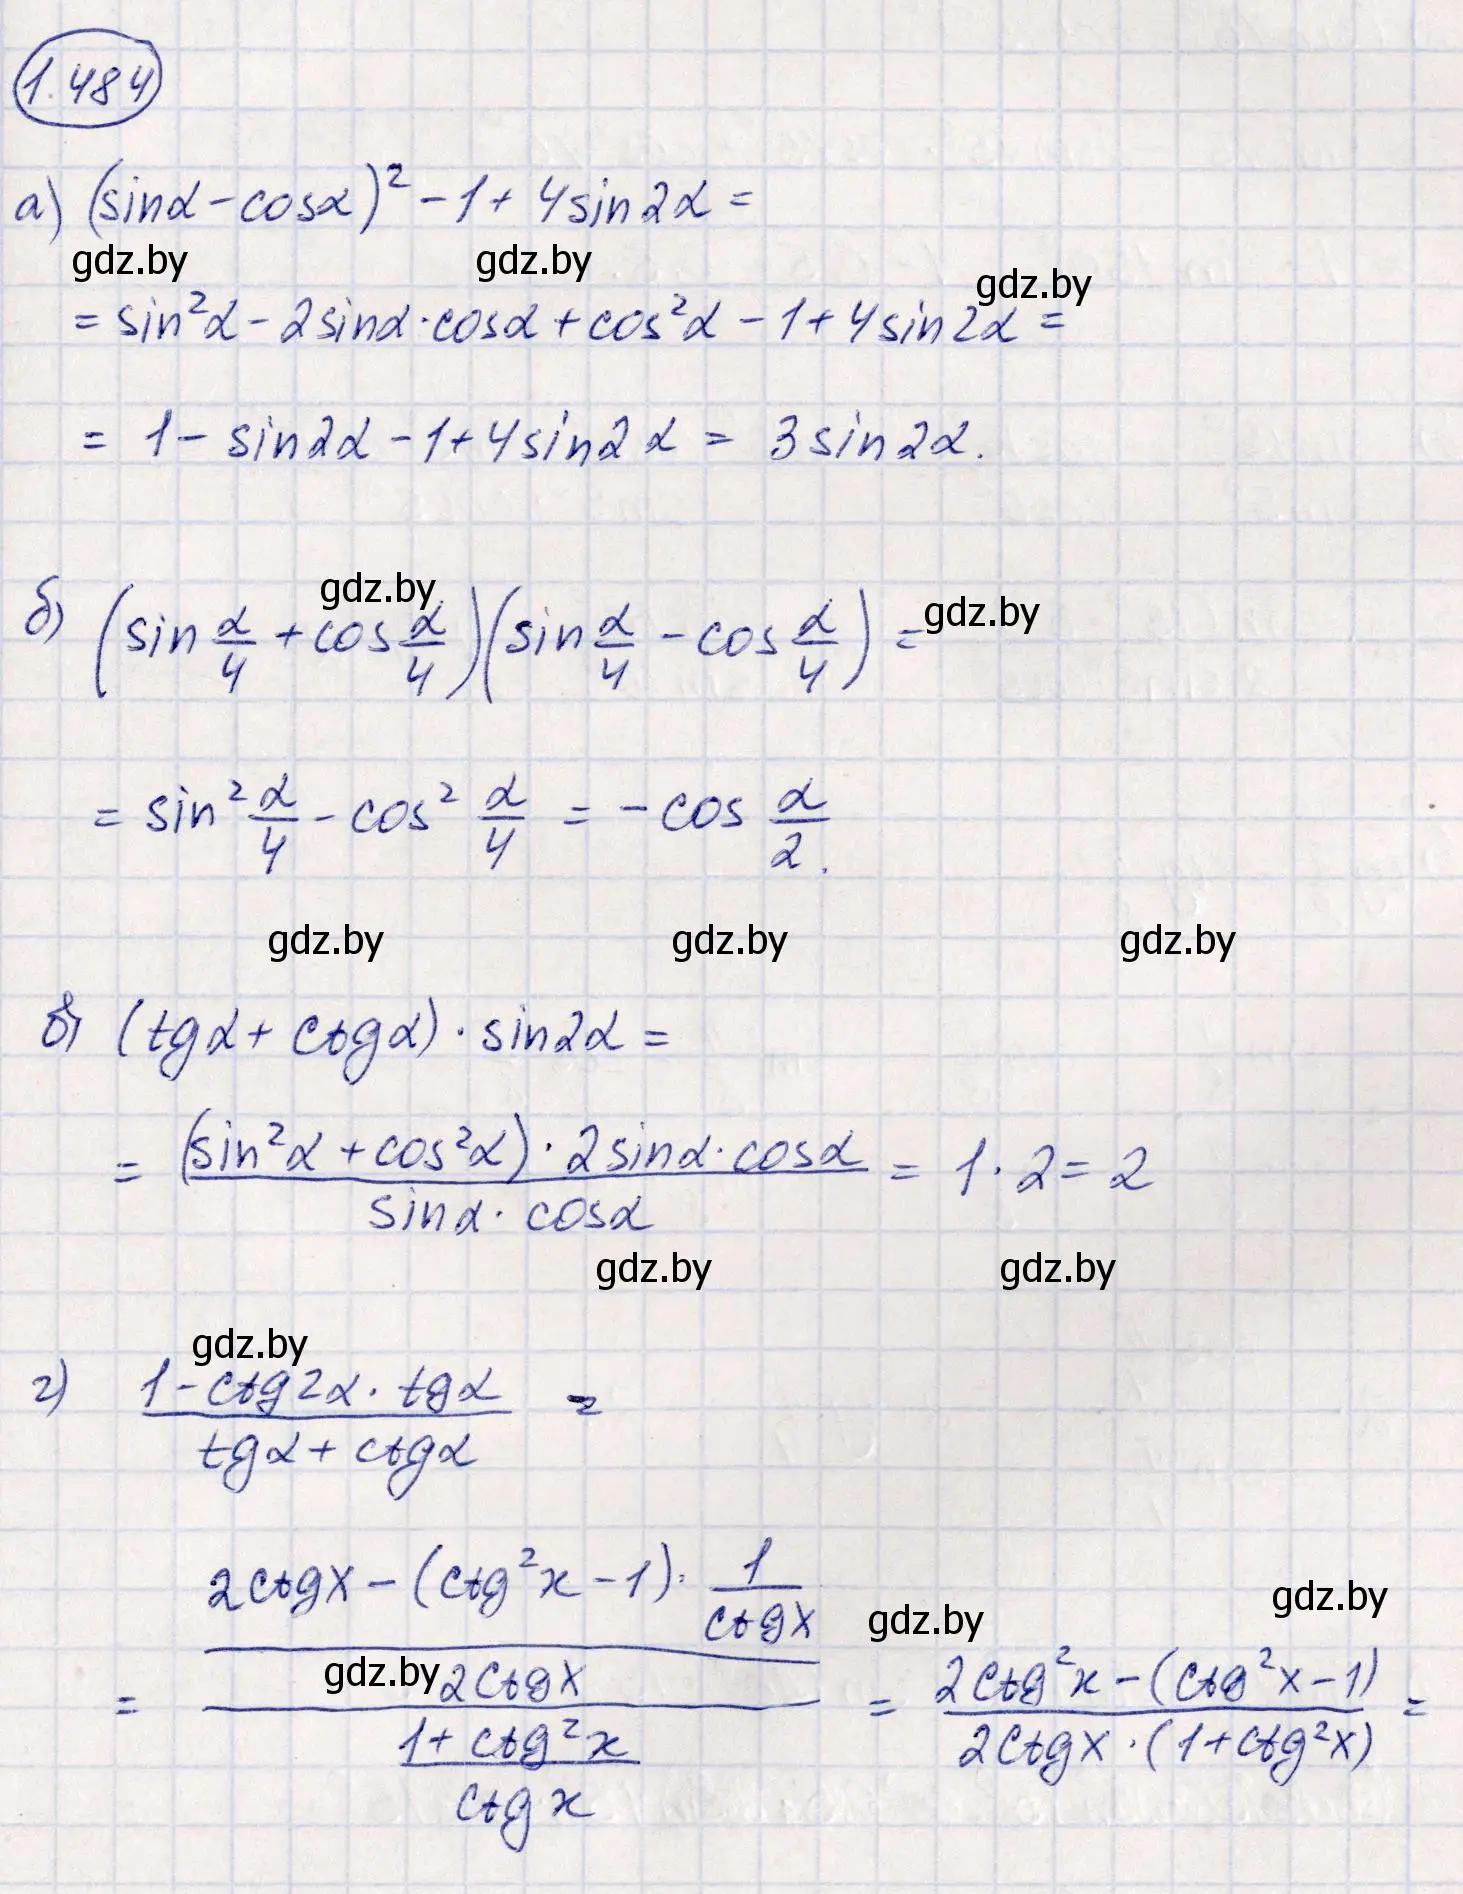 1.484
а) (sinα - cosα)² - 1 + 4sin2α =
gdz.by gdz.by gdz.by
= sin²α - 2sinα·cosα + cos²α - 1 + 4sin2α =
= 1 - sin2α - 1 + 4sin2α = 3sin2α.
gdz.by gdz.by
б) (sin α/4 + cos α/4)(sin α/4 - cos α/4) =
= sin² α/4 - cos² α/4 = -cos α/2.
gdz.by gdz.by gdz.by
в) (tgα + ctgα)·sin2α =
= (sin²α + cos²α)·2sinα·cosα / sinα·cosα = 1·2 = 2
gdz.by gdz.by
gdz.by
г) 1 - ctg2α·tgα / tgα + ctgα =
gdz.by gdz.by
gdz.by
= 2ctgx - (ctg²x - 1)· 1/ctgx / 2ctgx / 1 + ctg²x / ctgx = 2ctg²x - (ctg²x - 1) / 2ctgx·(1 + ctg²x) =